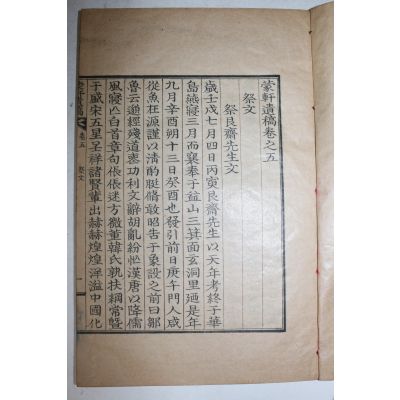 蒙軒遺稿卷之五
祭文
祭艮齋先生文
歲壬戌七月四日丙寅艮齋先生以天年考終于華
島燕寢三月而襄奉于益山三箕面玄洞里廼是年
九月辛酉朔十三日癸酉也發引前日庚午門人咸
從魚在源謹以淸酌脡脩敢昭告于象設之前曰鄒
魯云逝經殘道喪功利文辭胡亂紛惣漢唐以降儒
風寢亡白首章句倀倀迷方微董韓氏孰扶綱常曁
于盛宋五星呈祥諸賢輩出赫赫煌煌洋溢中國化
卷五
祭文
一